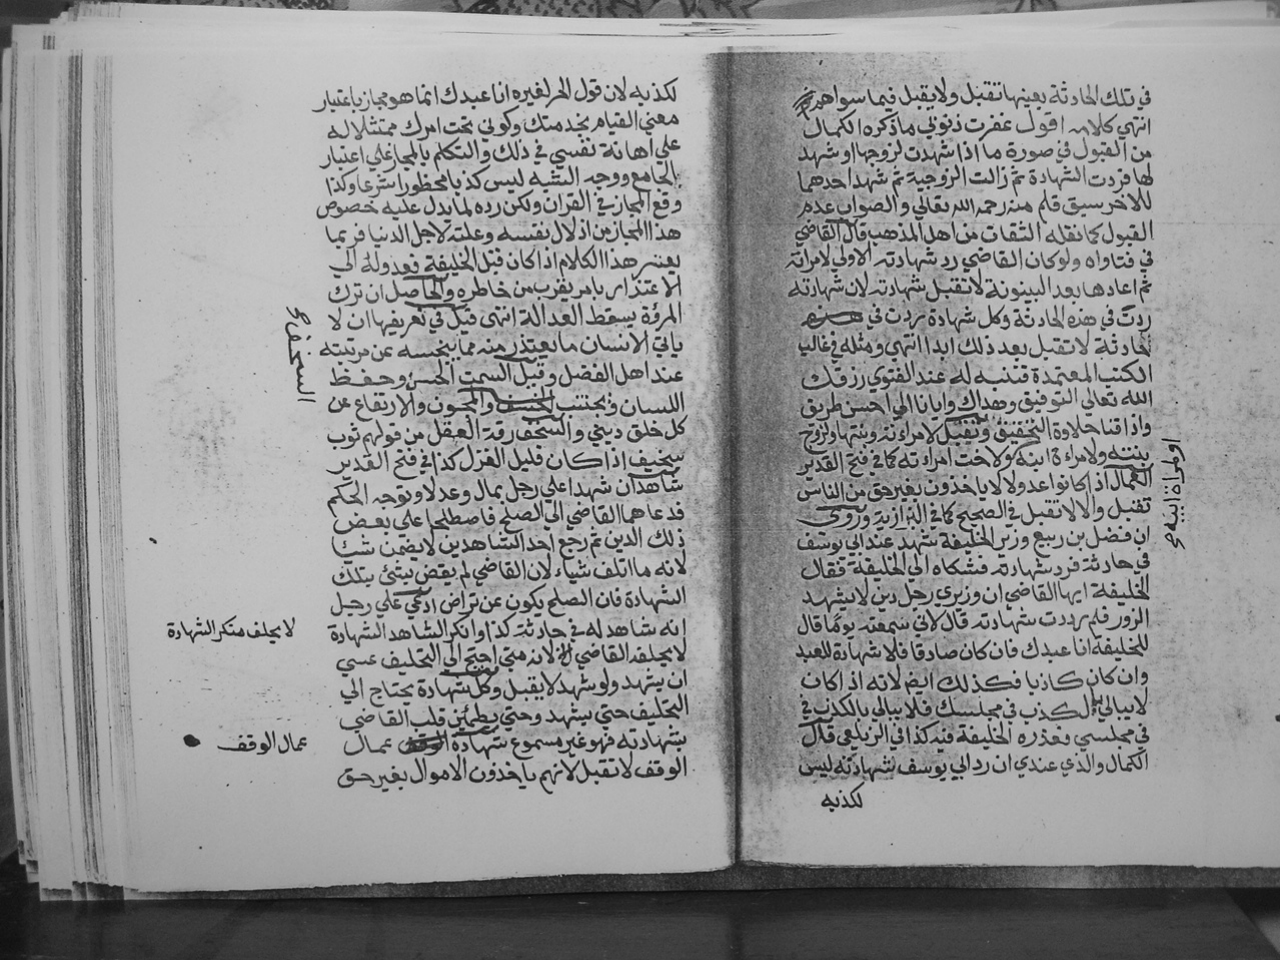 في تلك الحادثة بعينها تقبل ولا يقبل فيما سواها
انتهي كلامه اقول غفرت ذنوبي ما ذكره الكمال
من القبول في صورة ما اذا شهدت لزوجها او شهد
لها فردت الشهادة ثم زالت الزوجية ثم شهد احدهما
للاخر سبق قلم منه رحمه الله تعالي والصواب عدم
القبول كما نقله الثقات من اهل المذهب قال القاضي
في فتاواه ولو كان القاضي رد شهادته الاولي لامراته
ثم اعادها بعد البينونة لا تقبل شهادته لان شهادته
ردت في هذه الحادثة وكل شهادة ردت في
حادثة لا تقبل بعد ذلك ابدا انتهي ومثله في غالب
الكتب المعتمدة فتنبه له عند الفتوي رزقك
الله تعالي التوفيق وهداك وايانا الي احسن طريق
واذاقنا حلاوة التحقيق وتقبل لامراءته وبنتها ولزوج
بنته ولامراءة ابنه ولاخت امراءته كما في فتح القدير
العمال اذا كانوا عدولا لا ياخذون بغير حق من الناس
تقبل والا لا تقبل في الصحيح كما في البزازية وروي
ان فضل بن ربيع وزير الخليفة شهد عند ابي يوسف
في حادثة فرد شهادته فشكاه الي الخليفة فقال
الخليفة ايها القاضي ان وزيري رجل دين لا يشهد
الزور فلم رددت شهادته قال لاني سمعته يوما قال
للخليفة انا عبدك فان كان صادقا فلا شهادة للعبد
وان كان كاذبا فكذلك ايضا لانه اذا كان
لا يبالي الكذب في مجلسك فلا يبالي بالكذب في
في مجلسي فعذره الخليفة فيه كذا في الزيلعي قال
الكمال والذي عندي ان رد ابي يوسف شهادته ليس
لكذبه
او لمراة ابيه صح
لكذبه لان قول الحر لغيره انا عبدك انما هو مجاز باعتبار
معني القيام بخدمتك وكوني تحت امرك ممتثلا له
علي اهانة نفسي في ذلك والتكلم بالمجاز علي اعتبار
الجامع ووجه الشبه ليس كذبا محظورا شرعا وكذا
وقع المجاز في القران ولكن رده لما يدل عليه خصوص
هذا المجاز من اذلال نفسه وعلته لاجل الدنيا فربما
يعتبر هذا الكلام اذا كان قبل الخليفة فعدوله الي
الاعتذار بامر يقرب من خاطره والحاصل ان ترك
المرؤة يسقط العدالة انتهي قيل في تعريفها ان لا
ياتي الانسان ما يعتذر منه مما يبخسه عن مرتبته
عند اهل الفضل وقيل السمت الحسن وحفظ
اللسان وتجنب والمجون والارتفاع عن
كل خلق دنيئ والسخف رقة العقل من قولهم ثوب
سخيف اذا كان قليل الغزل كذا في فتح القدير
شاهدان شهدا علي رجل بمال وعدلا وتوجه الحكم
فدعاهما القاضي الي الصلح فاصطلحا علي بعض
ذلك الدين ثم رجع احد الشاهدين لا يضمن شيئا
لانه ما اتلف شياء لان القاضي لم يقض بشئ بتلك
الشهادة فان الصلح يكون عن تراض ادعي علي رجل
انه شاهد له في حادثة كذا وانكر الشاهد الشهادة
لا يحلفه القاضي لانه متي احتج الي التحليف عسي
ان يشهد ولو شهد لا يقبل وكل شهادة يحتاج الي
التحليف حتي يشهد وحتي يطمئن قلب القاضي
بشهادته فهو غير مسموع شهادة عمال
الوقف لا تقبل لانهم ياخذون الاموال بغير حق
السخف صح
لا يحلف منكر الشهادة
عمال الوقف